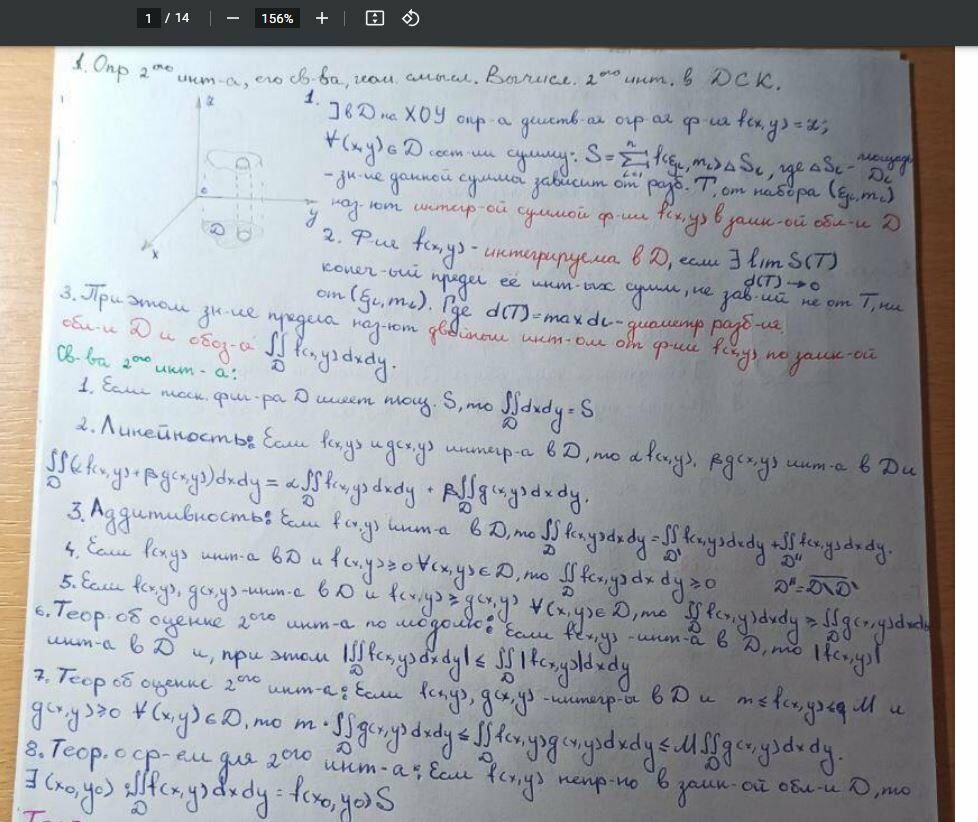 1 / 14 156%
1. Опр 2ого инт-а, его св-ва, геом. смысл. Вычисл. 2ого инт. в ДСК.
z
y
x
0
D
1. ∃ в D на XOY опр-а действ-ая огр-ая ф-ия f(x,y) = z;
∀(x,y)∈D сост-им сумму: S=∑ᵢ₌₁ⁿ f(ξᵢ,mᵢ)△Sᵢ, где △Sᵢ - площадь Dᵢ
- зн-ие данной суммы зависит от разб. T, от набора (ξᵢ,mᵢ)
наз-ют интегр-ой суммой ф-ии f(x,y) в замк-ой обл-и D
2. Ф-ия f(x,y) - интегрируема в D, если ∃ lim S(T)
d(T)→0
конеч-ый предел её инт-ых сумм, не зав-ий не от T, ни
от (ξᵢ,mᵢ). Где d(T)=max dᵢ - диаметр разб-ия.
3. При этом зн-ие предела наз-ют двойным инт-ом от ф-ии f(x,y) по замк-ой
обл-и D и обоз-а ∬_D f(x,y)dxdy.
Св-ва 2ого инт-а:
1. Если плоск. фиг-ра D имеет площ. S, то ∬_D dxdy = S
2. Линейность: Если f(x,y) и g(x,y) интегр-а в D, то αf(x,y), βg(x,y) инт-а в D и
∬_D (αf(x,y)+βg(x,y))dxdy = α∬_D f(x,y)dxdy + β∬_D g(x,y)dxdy.
3. Аддитивность: Если f(x,y) инт-а в D, то ∬_D f(x,y)dxdy = ∬_D' f(x,y)dxdy + ∬_D'' f(x,y)dxdy.
4. Если f(x,y) инт-а в D и f(x,y)≥0 ∀(x,y)∈D, то ∬_D f(x,y)dxdy ≥ 0 D''=D\D'
5. Если f(x,y), g(x,y) - инт-а в D и f(x,y)≥g(x,y) ∀(x,y)∈D, то ∬_D f(x,y)dxdy ≥ ∬_D g(x,y)dxdy
6. Теор. об оценке 2ого инт-а по модулю: Если f(x,y) - инт-а в D, то |f(x,y)|
инт-а в D и, при этом |∬_D f(x,y)dxdy| ≤ ∬_D |f(x,y)|dxdy
7. Теор об оценке 2ого инт-а: Если f(x,y), g(x,y) - интегр-ы в D и m≤f(x,y)≤M и
g(x,y)≥0 ∀(x,y)∈D, то m·∬_D g(x,y)dxdy ≤ ∬_D f(x,y)g(x,y)dxdy ≤ M∬_D g(x,y)dxdy.
8. Теор. о ср-ем для 2ого инт-а: Если f(x,y) непр-но в замк-ой обл-и D, то
∃(x₀,y₀): ∬_D f(x,y)dxdy = f(x₀,y₀)S